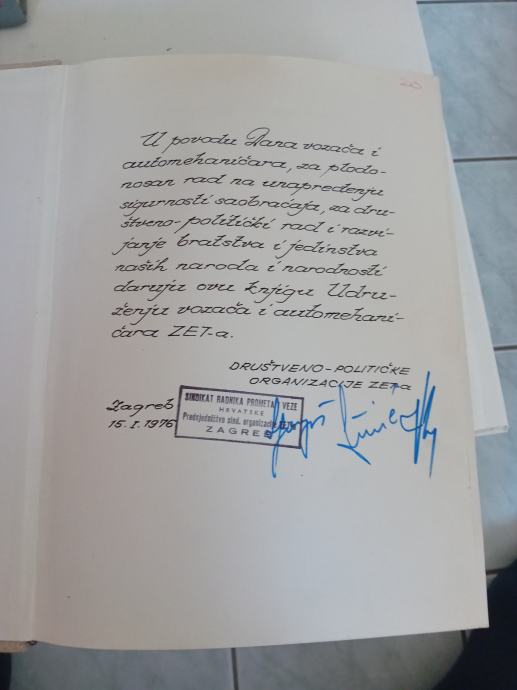 20
U povodu Dana vozača i
automehaničara, za plodo-
nosan rad na unapređenju
sigurnosti saobraćaja, za dru-
štveno-politički rad i razvi-
janje bratstva i jedinstva
naših naroda i narodnosti
daruju ovu knjigu Udru-
ženju vozača i automehani-
čara ZET-a.
DRUŠTVENO-POLITIČKE
ORGANIZACIJE ZET-a
Zagreb
15. I. 1976
SINDIKAT RADNIKA PROMETA I VEZE
HRVATSKE
Predsjedništvo sind. organizacije ZET-a
ZAGREB